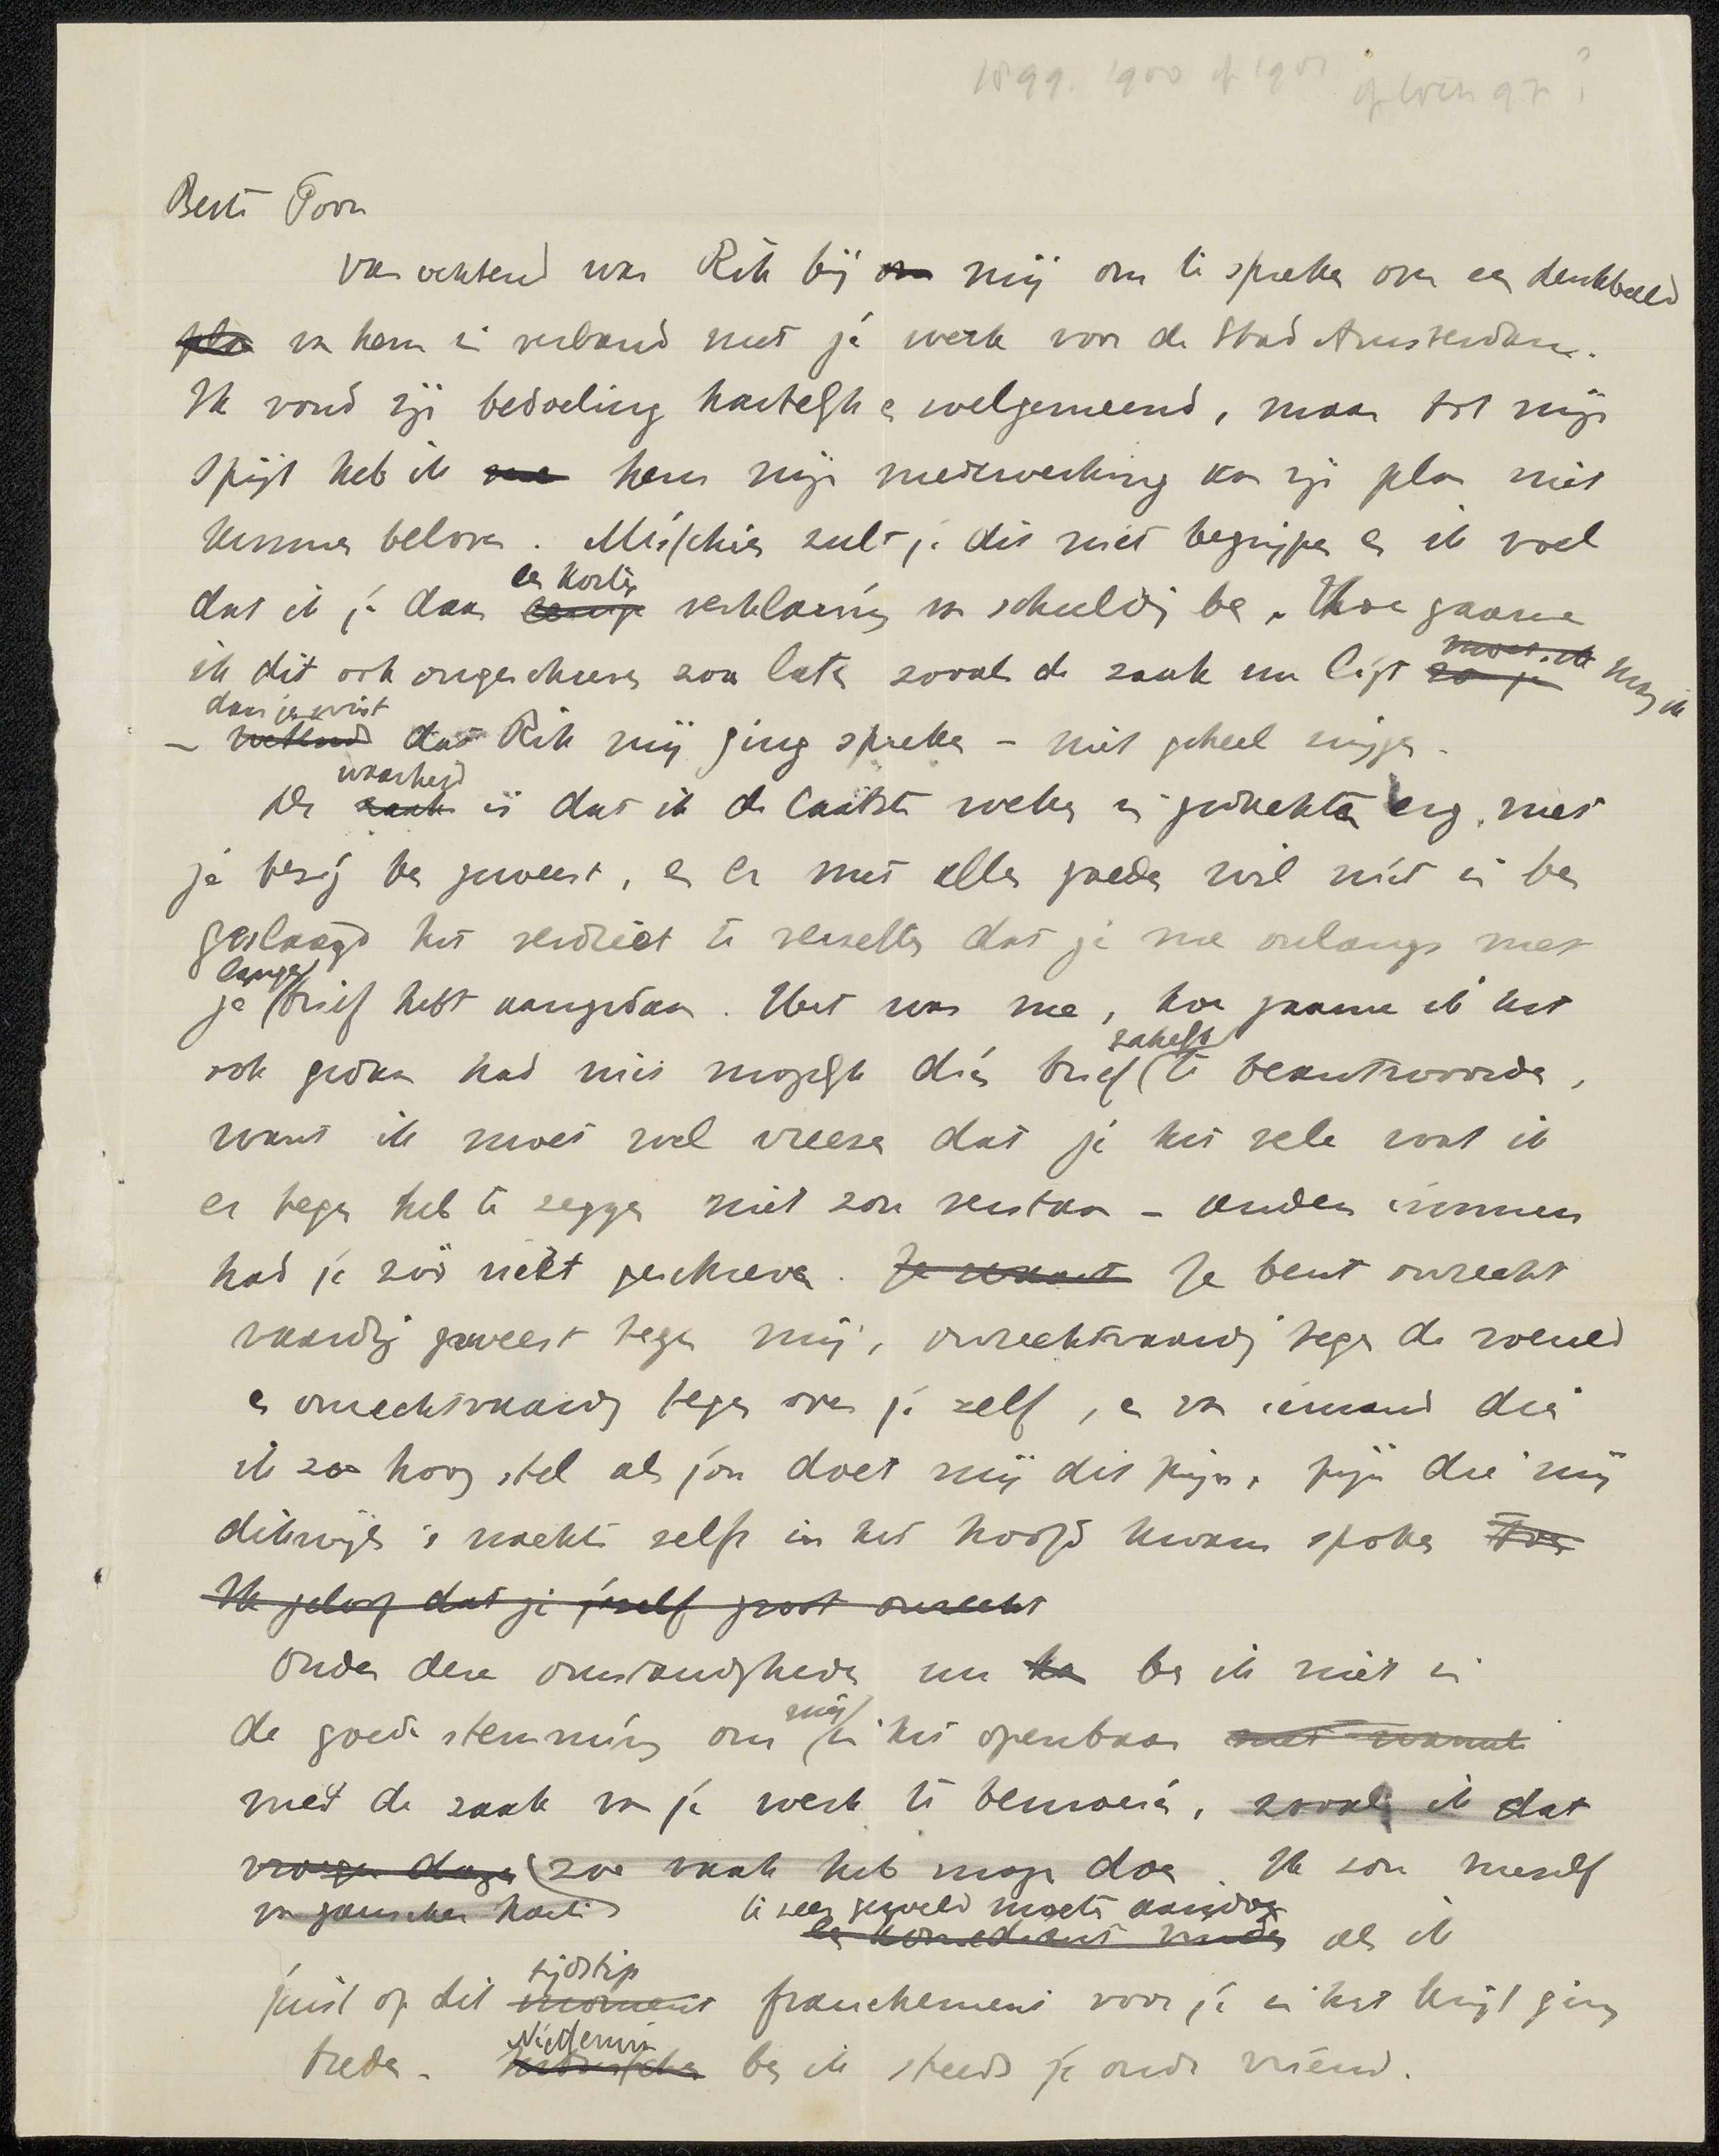 1899. 1900 of 1901
Beste Toon
van ochtend was Rik bij om mij om te spreken over een denkbeeld
plan van hem in verband met je werk voor de Stad Amsterdam.
Ik vond zijn bedoeling hartelijk en welgemeend, maar tot mijn
spijt heb ik me hem mijn medewerking aan zijn plan niet
kunnen beloven. Misschien zult je dit niet begrijpen en ik voel
dat ik je daar eenige een korte verklaring van schuldig ben. Hoe gaarne
ik dit ook ongeschreven zou laten zooals de zaak nu ligt zo je moet ik mag ik
– wetend daar je wist dat Rik mij ging spreken – niet geheel zwijgen.
De zaak waarheid is dat ik de laatste weken in gedachten erg met
je bezig ben geweest, en er met allen goeden wil niet in ben
geslaagd het verdriet te verzetten dat je me onlangs met
je langen brief hebt aangedaan. Het was me, hoe gaarne ik het
ook gedaan had niet mogelijk dien brief zakelijk te beantwoorden,
want ik moet wel vreezen dat je het vele wat ik
er tegen heb te zeggen niet zou verstaan – anders immers
had je zóó niet geschreven. Je Je bent onrecht
vaardig geweest tegen mij, onrechtvaardig tegen de wereld
en onrechtvaardig tegen over je zelf, en van iemand die
ik zoo hoog stel als jou doet mij dit pijn, pijn die mij
dikwijls 's nachts zelfs in het hoofd kwam spoken
Ik geloof dat je jezelf groot onrecht
Onder deze omstandigheden nu ben ik niet in
de goede stemming om mij in het openbaar met warmte
met de zaak van je werk te bemoeien, zooals ik dat
vroeger dagen zoo vaak heb mogen doen. Ik zou mezelf
van ganscher harte te zeer geweld moeten aandoen een komediant vinden als ik
juist op dit moment tijdstip franchement voor je in het krijt ging
treden. Niettemin ben ik steeds je oude vriend.